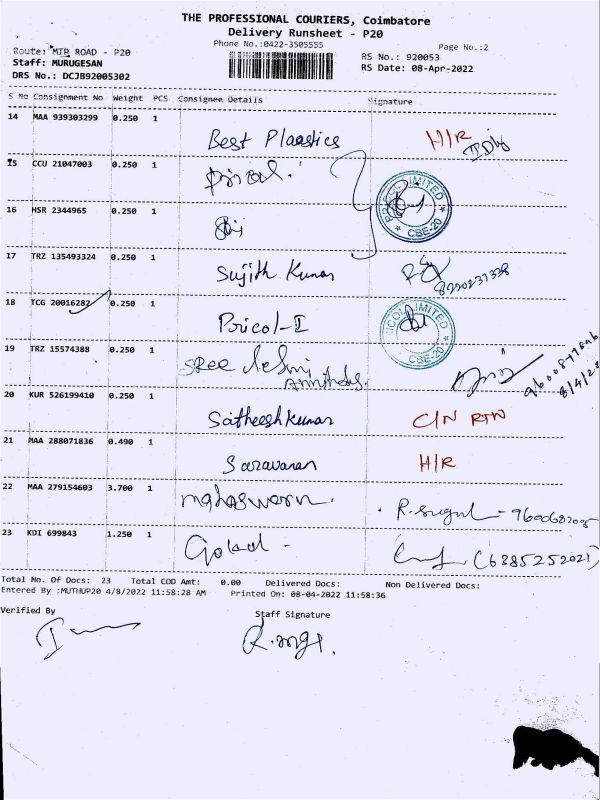 THE PROFESSIONAL COURIERS, Coimbatore
Delivery Runsheet - P20
Phone No.:0422-3505555
Page No.:2
Route: MTP ROAD - P20
RS No.: 920053
Staff: MURUGESAN
RS Date: 08-Apr-2022
DRS No.: DCJB92005302
S No Consignment No Weight PCS Consignee Details Signature
14 MAA 939303299 0.250 1
Best Plaastics H/R
15 CCU 21047003 0.250 1
Pricol.
PRICOL LIMITED
★ CBE-20 ★
16 HSR 2344965 0.250 1
17 TRZ 135493324 0.250 1
Sujith Kumar
18 TCG 20016282 0.250 1
Pricol-I
PRICOL LIMITED
CBE-20 ★
19 TRZ 15574388 0.250 1
Sree
8/4/22
20 KUR 526199410 0.250 1
Satheeshkumar C/N RTN
21 MAA 288071836 0.490 1
Saravanan H/R
22 MAA 279154603 3.700 1
23 KDI 699843 1.250 1
(6385252021)
Total No. Of Docs: 23 Total COD Amt: 0.00 Delivered Docs: Non Delivered Docs:
Entered By :MUTHUP20 4/8/2022 11:58:28 AM Printed On: 08-04-2022 11:58:36
Verified By
Staff Signature